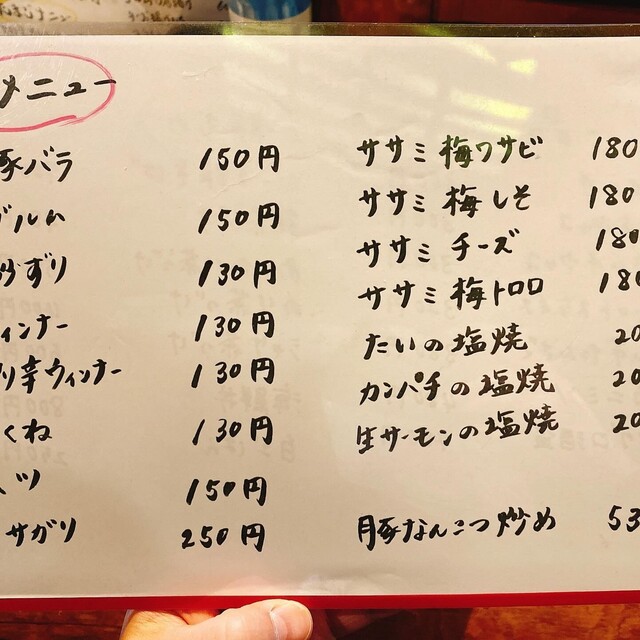 メニュー
豚バラ 150円
ルム 150円
ずり 130円
ィンナー 130円
リ辛ウィンナー 130円
くね 130円
ツ 150円
サガリ 250円
ササミ梅ワサビ 180
ササミ梅しそ 180
ササミチーズ 180
ササミ梅トロロ 180
たいの塩焼 20
カンパチの塩焼 20
生サーモンの塩焼 20
豚なんこつ炒め 53